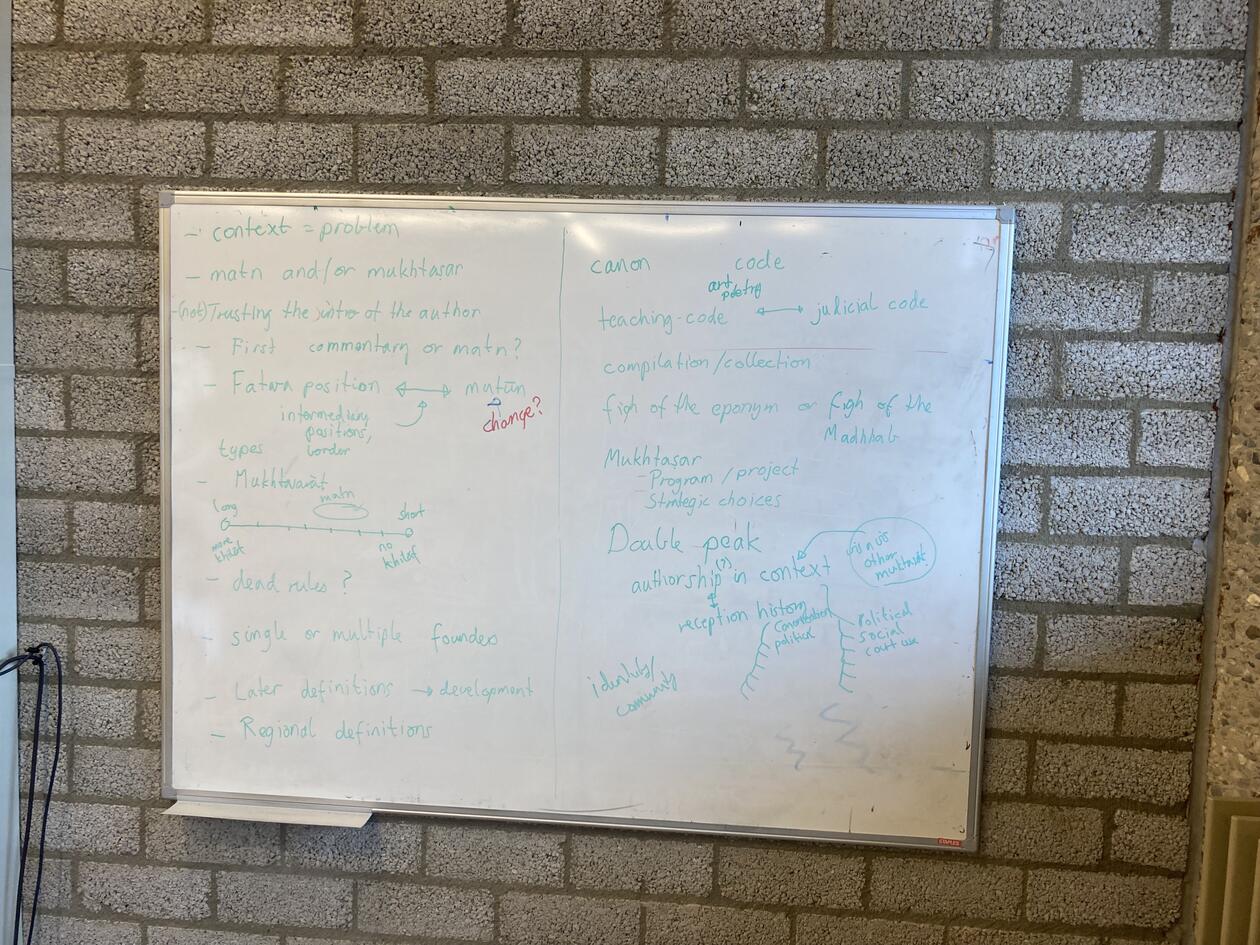 - context = problem
- matn and/or mukhtaṣar
-(not) Trusting the intro of the author
- First commentary or matn?
- Fatwa position ↔ mutūn
change?
intermediary
positions,
border
types
- Mukhtaṣarāt
matn
long
short
more
khilāf
no
khilāf
- dead rules ?
- single or multiple founder
- Later definitions → development
- Regional definitions
canon code
teaching-code ↔ judicial code
compilation/collection
fiqh of the eponym or fiqh of the
Madhhab
Mukhtaṣar
- Program / project
- Strategic choices
Double peak
authorship (?) in context
vis a vis
other
reception history
political
Political
social
court use
identity/
community
STAPLES